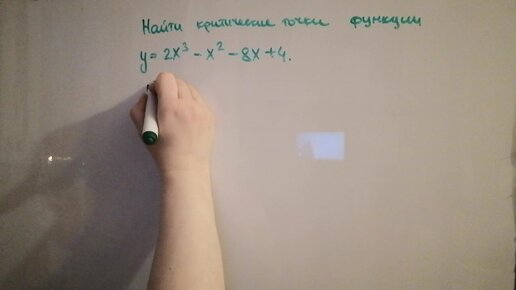 Найти критические точки функции
y = 2x³ - x² - 8x + 4.